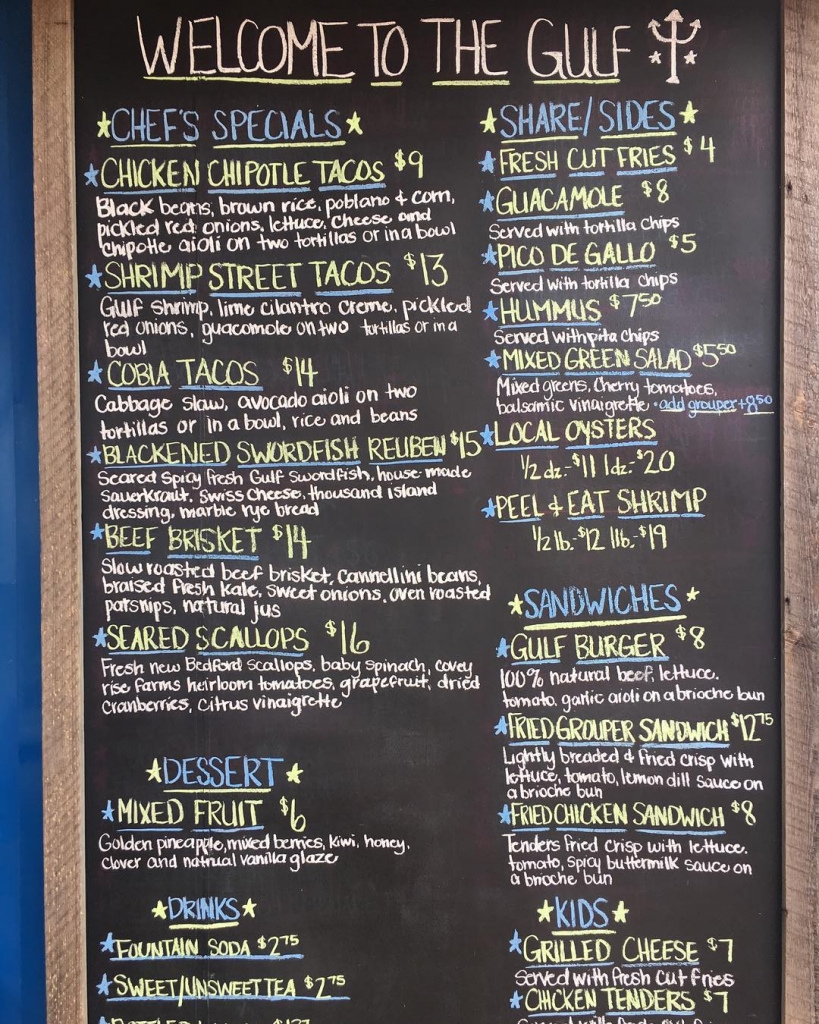 WELCOME TO THE GULF
CHEF'S SPECIALS
CHICKEN CHIPOTLE TACOS $9
Black beans, brown rice, poblano & corn,
pickled red onions, lettuce, cheese and
chipotle aioli on two tortillas or in a bowl
SHRIMP STREET TACOS $13
Gulf shrimp, lime cilantro creme, pickled
red onions, guacomole on two tortillas or in a
bowl
COBIA TACOS $14
Cabbage slaw, avocado aioli on two
tortillas or in a bowl, rice and beans
BLACKENED SWORDFISH REUBEN $15
Seared spicy fresh Gulf swordfish, house-made
sauerkraut, swiss cheese, thousand island
dressing, marble rye bread
BEEF BRISKET $14
Slow roasted beef brisket, cannellini beans,
braised fresh kale, sweet onions, oven roasted
parsnips, natural jus
SEARED SCALLOPS $16
Fresh new Bedford scallops, baby spinach, covey
rise farms heirloom tomatoes, grapefruit, dried
cranberries, citrus vinaigrette
DESSERT
MIXED FRUIT $6
Golden pineapple, mixed berries, kiwi, honey,
clover and natrual vanilla glaze
DRINKS
FOUNTAIN SODA $2.75
SWEET/UNSWEET TEA $2.75
SHARE/SIDES
FRESH CUT FRIES $4
GUACAMOLE $8
Served with tortilla chips
PICO DE GALLO $5
Served with tortilla chips
HUMMUS $7.50
Served with pita chips
MIXED GREEN SALAD $5.50
Mixed greens, cherry tomatoes,
balsamic vinaigrette • add grouper +8.50
LOCAL OYSTERS
1/2 dz.-$11 1dz.-$20
PEEL & EAT SHRIMP
1/2 lb.-$12 1lb.-$19
SANDWICHES
GULF BURGER $8
100% natural beef, lettuce,
tomato, garlic aioli on a brioche bun
FRIED GROUPER SANDWICH $12.75
Lightly breaded & fried crisp with
lettuce, tomato, lemon dill sauce on
a brioche bun
FRIED CHICKEN SANDWICH $8
Tenders fried crisp with lettuce,
tomato, spicy buttermilk sauce on
a brioche bun
KIDS
GRILLED CHEESE $7
Served with fresh cut fries
CHICKEN TENDERS $7